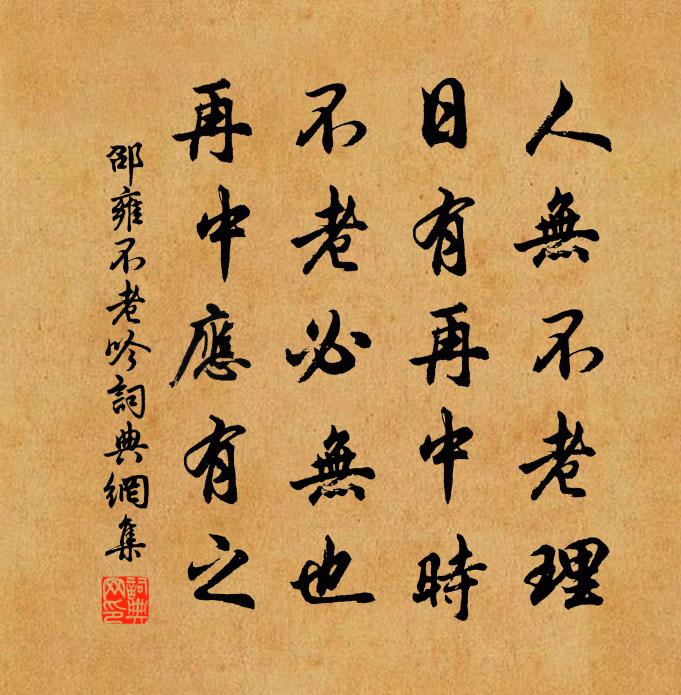 人無不老理
日有再中時
不老必無也
再中應有之
邵雍不老吟詞典網集
詞典網印